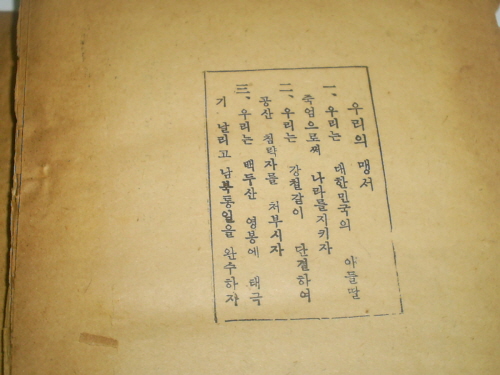 우리의 맹서
一、우리는 대한민국의 아들딸
죽엄으로써 나라를지키자
二、우리는 강철같이 단결하여
공산 침략자를 처부시자
三、우리는 백두산 영봉에 태극
기 날리고 남북통일을 완수하자